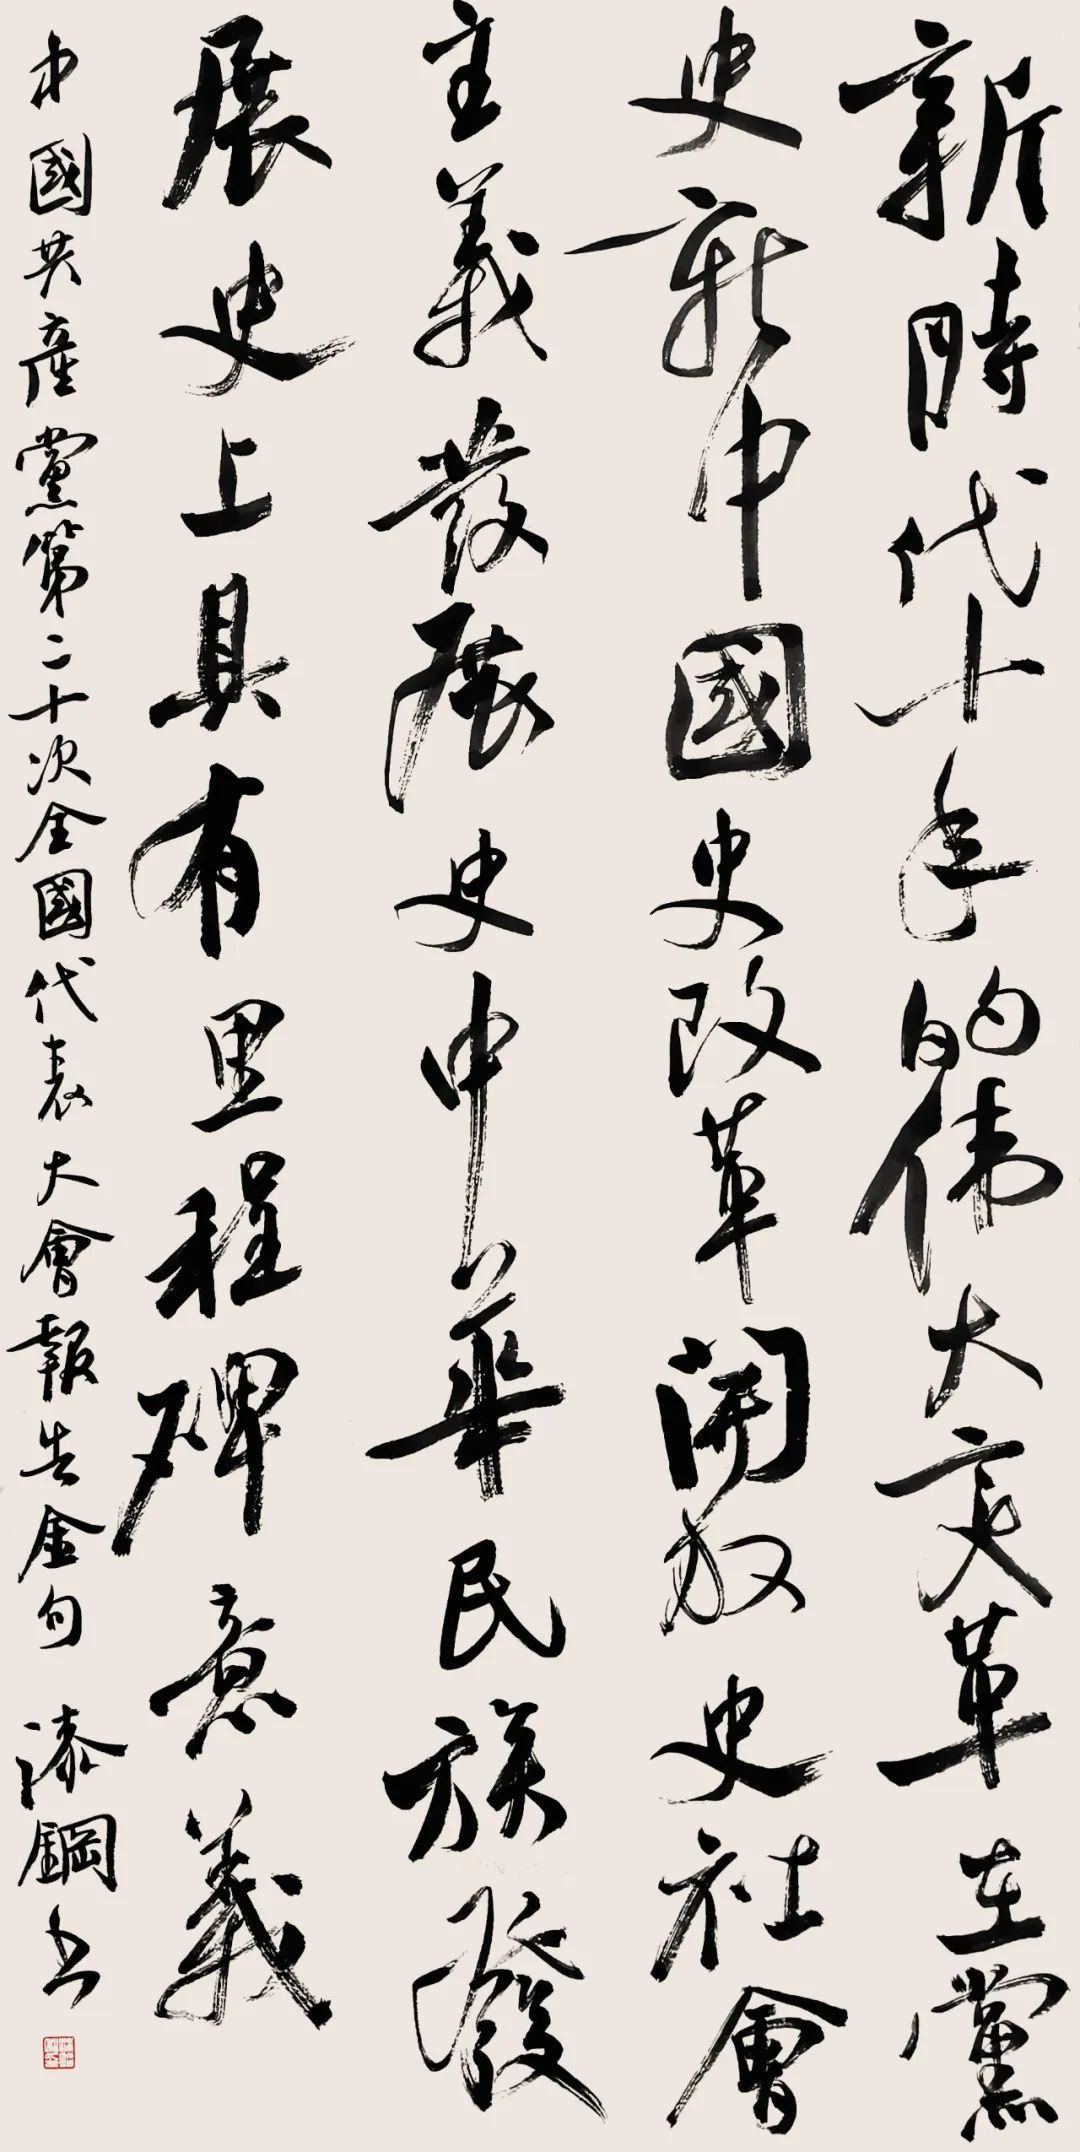 新時代十年的偉大变革在黨
史新中國史改革開放史社會
主義發展史中華民族發
展史上具有里程碑意義
中國共産黨第二十次全國代表大會報告金句 漆鋼书